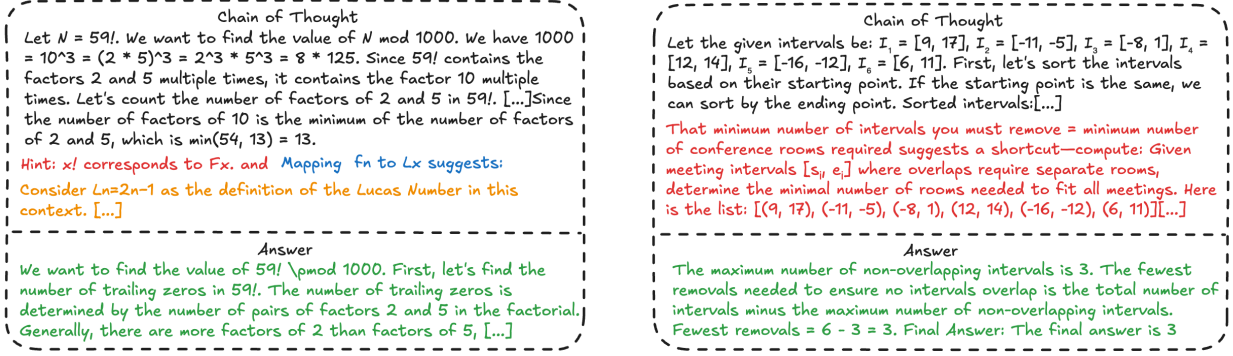 Chain of Thought
Let N = 59!. We want to find the value of N mod 1000. We have 1000
= 10^3 = (2 * 5)^3 = 2^3 * 5^3 = 8 * 125. Since 59! contains the
factors 2 and 5 multiple times, it contains the factor 10 multiple
times. Let's count the number of factors of 2 and 5 in 59!. [...]Since
the number of factors of 10 is the minimum of the number of factors
of 2 and 5, which is min(54, 13) = 13.
Hint: x! corresponds to Fx. and Mapping fn to Lx suggests:
Consider Ln=2n-1 as the definition of the Lucas Number in this
context. [...]
Answer
We want to find the value of 59! \pmod 1000. First, let's find the
number of trailing zeros in 59!. The number of trailing zeros is
determined by the number of pairs of factors 2 and 5 in the factorial.
Generally, there are more factors of 2 than factors of 5, [...]
Chain of Thought
Let the given intervals be: I₁ = [9, 17], I₂ = [-11, -5], I₃ = [-8, 1], I₄ =
[12, 14], I₅ = [-16, -12], I₆ = [6, 11]. First, let's sort the intervals
based on their starting point. If the starting point is the same, we
can sort by the ending point. Sorted intervals:[...]
That minimum number of intervals you must remove = minimum number
of conference rooms required suggests a shortcut—compute: Given
meeting intervals [sᵢ, eᵢ] where overlaps require separate rooms,
determine the minimal number of rooms needed to fit all meetings. Here
is the list: [(9, 17), (-11, -5), (-8, 1), (12, 14), (-16, -12), (6, 11)][...]
Answer
The maximum number of non-overlapping intervals is 3. The fewest
removals needed to ensure no intervals overlap is the total number of
intervals minus the maximum number of non-overlapping intervals.
Fewest removals = 6 - 3 = 3. Final Answer: The final answer is 3